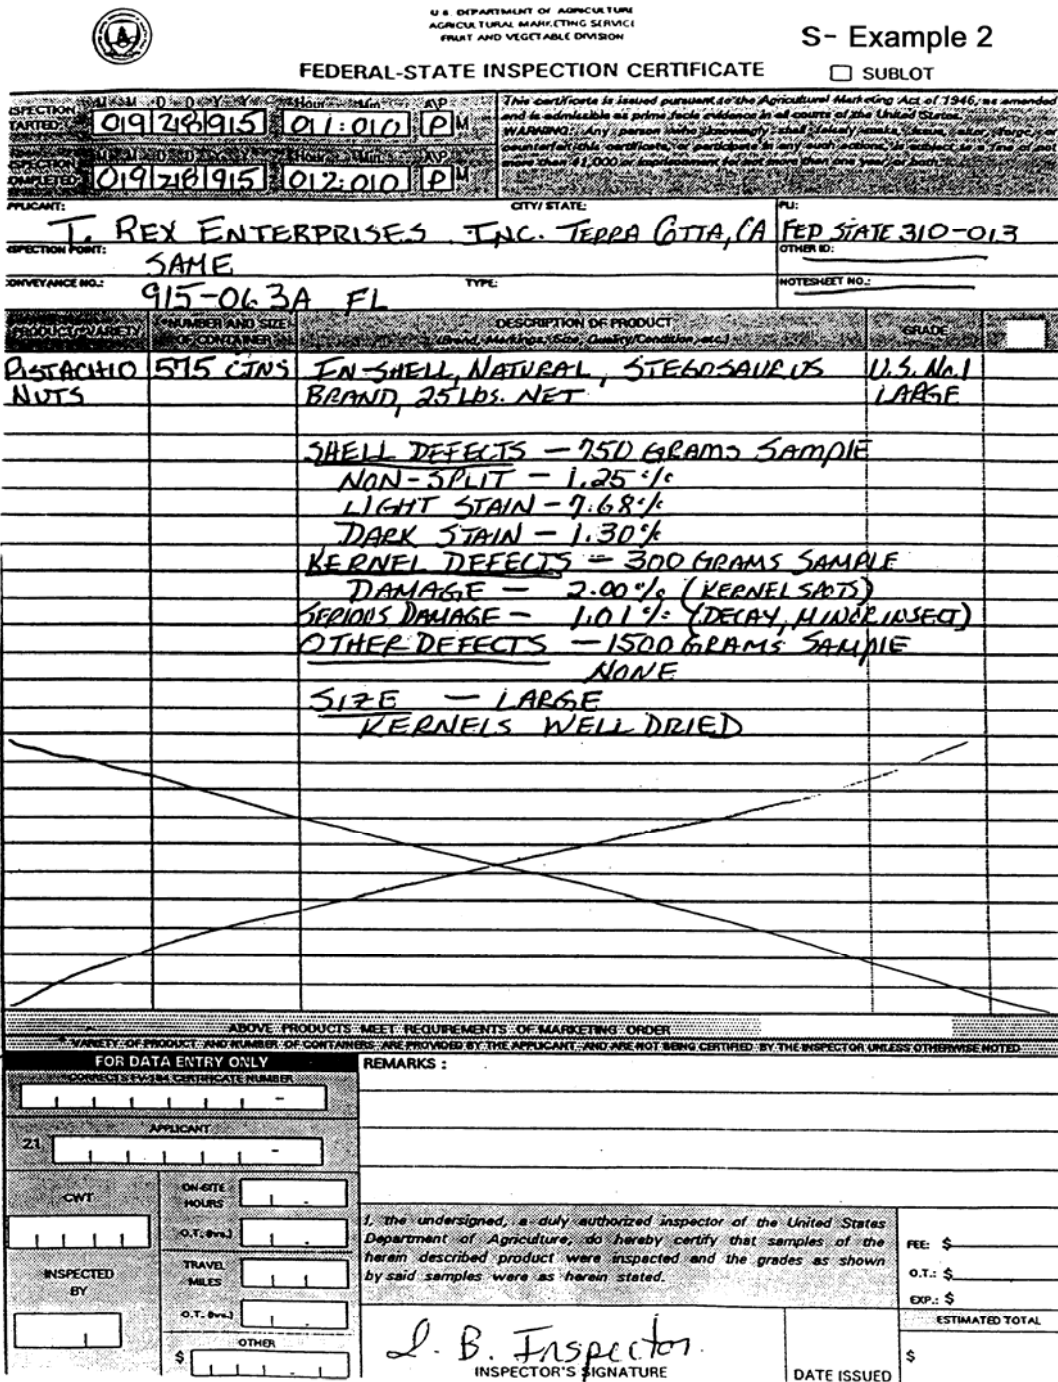 U.S. DEPARTMENT OF AGRICULTURE
AGRICULTURAL MARKETING SERVICE
FRUIT AND VEGETABLE DIVISION
S- Example 2
FEDERAL-STATE INSPECTION CERTIFICATE
SUBLOT
SPECTION TARTED:
M M D D Y Y Hour Min A/P
09 28 95 01:00 P M
This certificate is issued pursuant to the Agricultural Marketing Act of 1946, as amended
and is admissible as prima facie evidence in all courts of the United States.
WARNING: Any person who knowingly shall falsely make, issue, alter, forge, or
counterfeit this certificate, or participate in any such actions, is subject to a fine of not
more than $1,000 or imprisonment for not more than one year, or both.
SPECTION OMPLETED:
M M D D Y Y Hour Min A/P
09 28 95 02:00 P M
PPLICANT: CITY/ STATE: PLI:
T. REX ENTERPRISES INC. TERRA COTTA, CA FED STATE 310-013
SPECTION POINT: OTHER ID:
SAME
ONVEYANCE NO.: TYPE: NOTESHEET NO.:
915-063A FL
PRODUCT/VARIETY
*NUMBER AND SIZE OF CONTAINER
DESCRIPTION OF PRODUCT
(Brand, Markings, Size, Quality/Condition, etc.)
GRADE
PISTACHIO 575 CTNS IN-SHELL, NATURAL, STEGOSAURUS U.S. No.1
NUTS BRAND, 25 Lbs. NET LARGE
SHELL DEFECTS — 750 GRAMS SAMPLE
NON-SPLIT — 1.25%
LIGHT STAIN — 7.68%
DARK STAIN — 1.30%
KERNEL DEFECTS — 300 GRAMS SAMPLE
DAMAGE — 2.00% (KERNEL SPOTS)
SERIOUS DAMAGE — 1.01% (DECAY, MINOR INSECT)
OTHER DEFECTS — 1500 GRAMS SAMPLE
NONE
SIZE — LARGE
KERNELS WELL DRIED
ABOVE PRODUCTS MEET REQUIREMENTS OF MARKETING ORDER
* VARIETY OF PRODUCT AND NUMBER OF CONTAINERS ARE PROVIDED BY THE APPLICANT AND ARE NOT BEING CERTIFIED BY THE INSPECTOR UNLESS OTHERWISE NOTED
FOR DATA ENTRY ONLY
CORRECTS FV-184 CERTIFICATE NUMBER
-
APPLICANT
21 -
CWT
ON-SITE HOURS
O.T.
INSPECTED BY
TRAVEL MILES
O.T.
OTHER
$
REMARKS :
I, the undersigned, a duly authorized inspector of the United States
Department of Agriculture, do hereby certify that samples of the
herein described product were inspected and the grades as shown
by said samples were as herein stated.
FEE: $
O.T.: $
EXP.: $
ESTIMATED TOTAL
$
I. B. Inspector
INSPECTOR'S SIGNATURE
DATE ISSUED